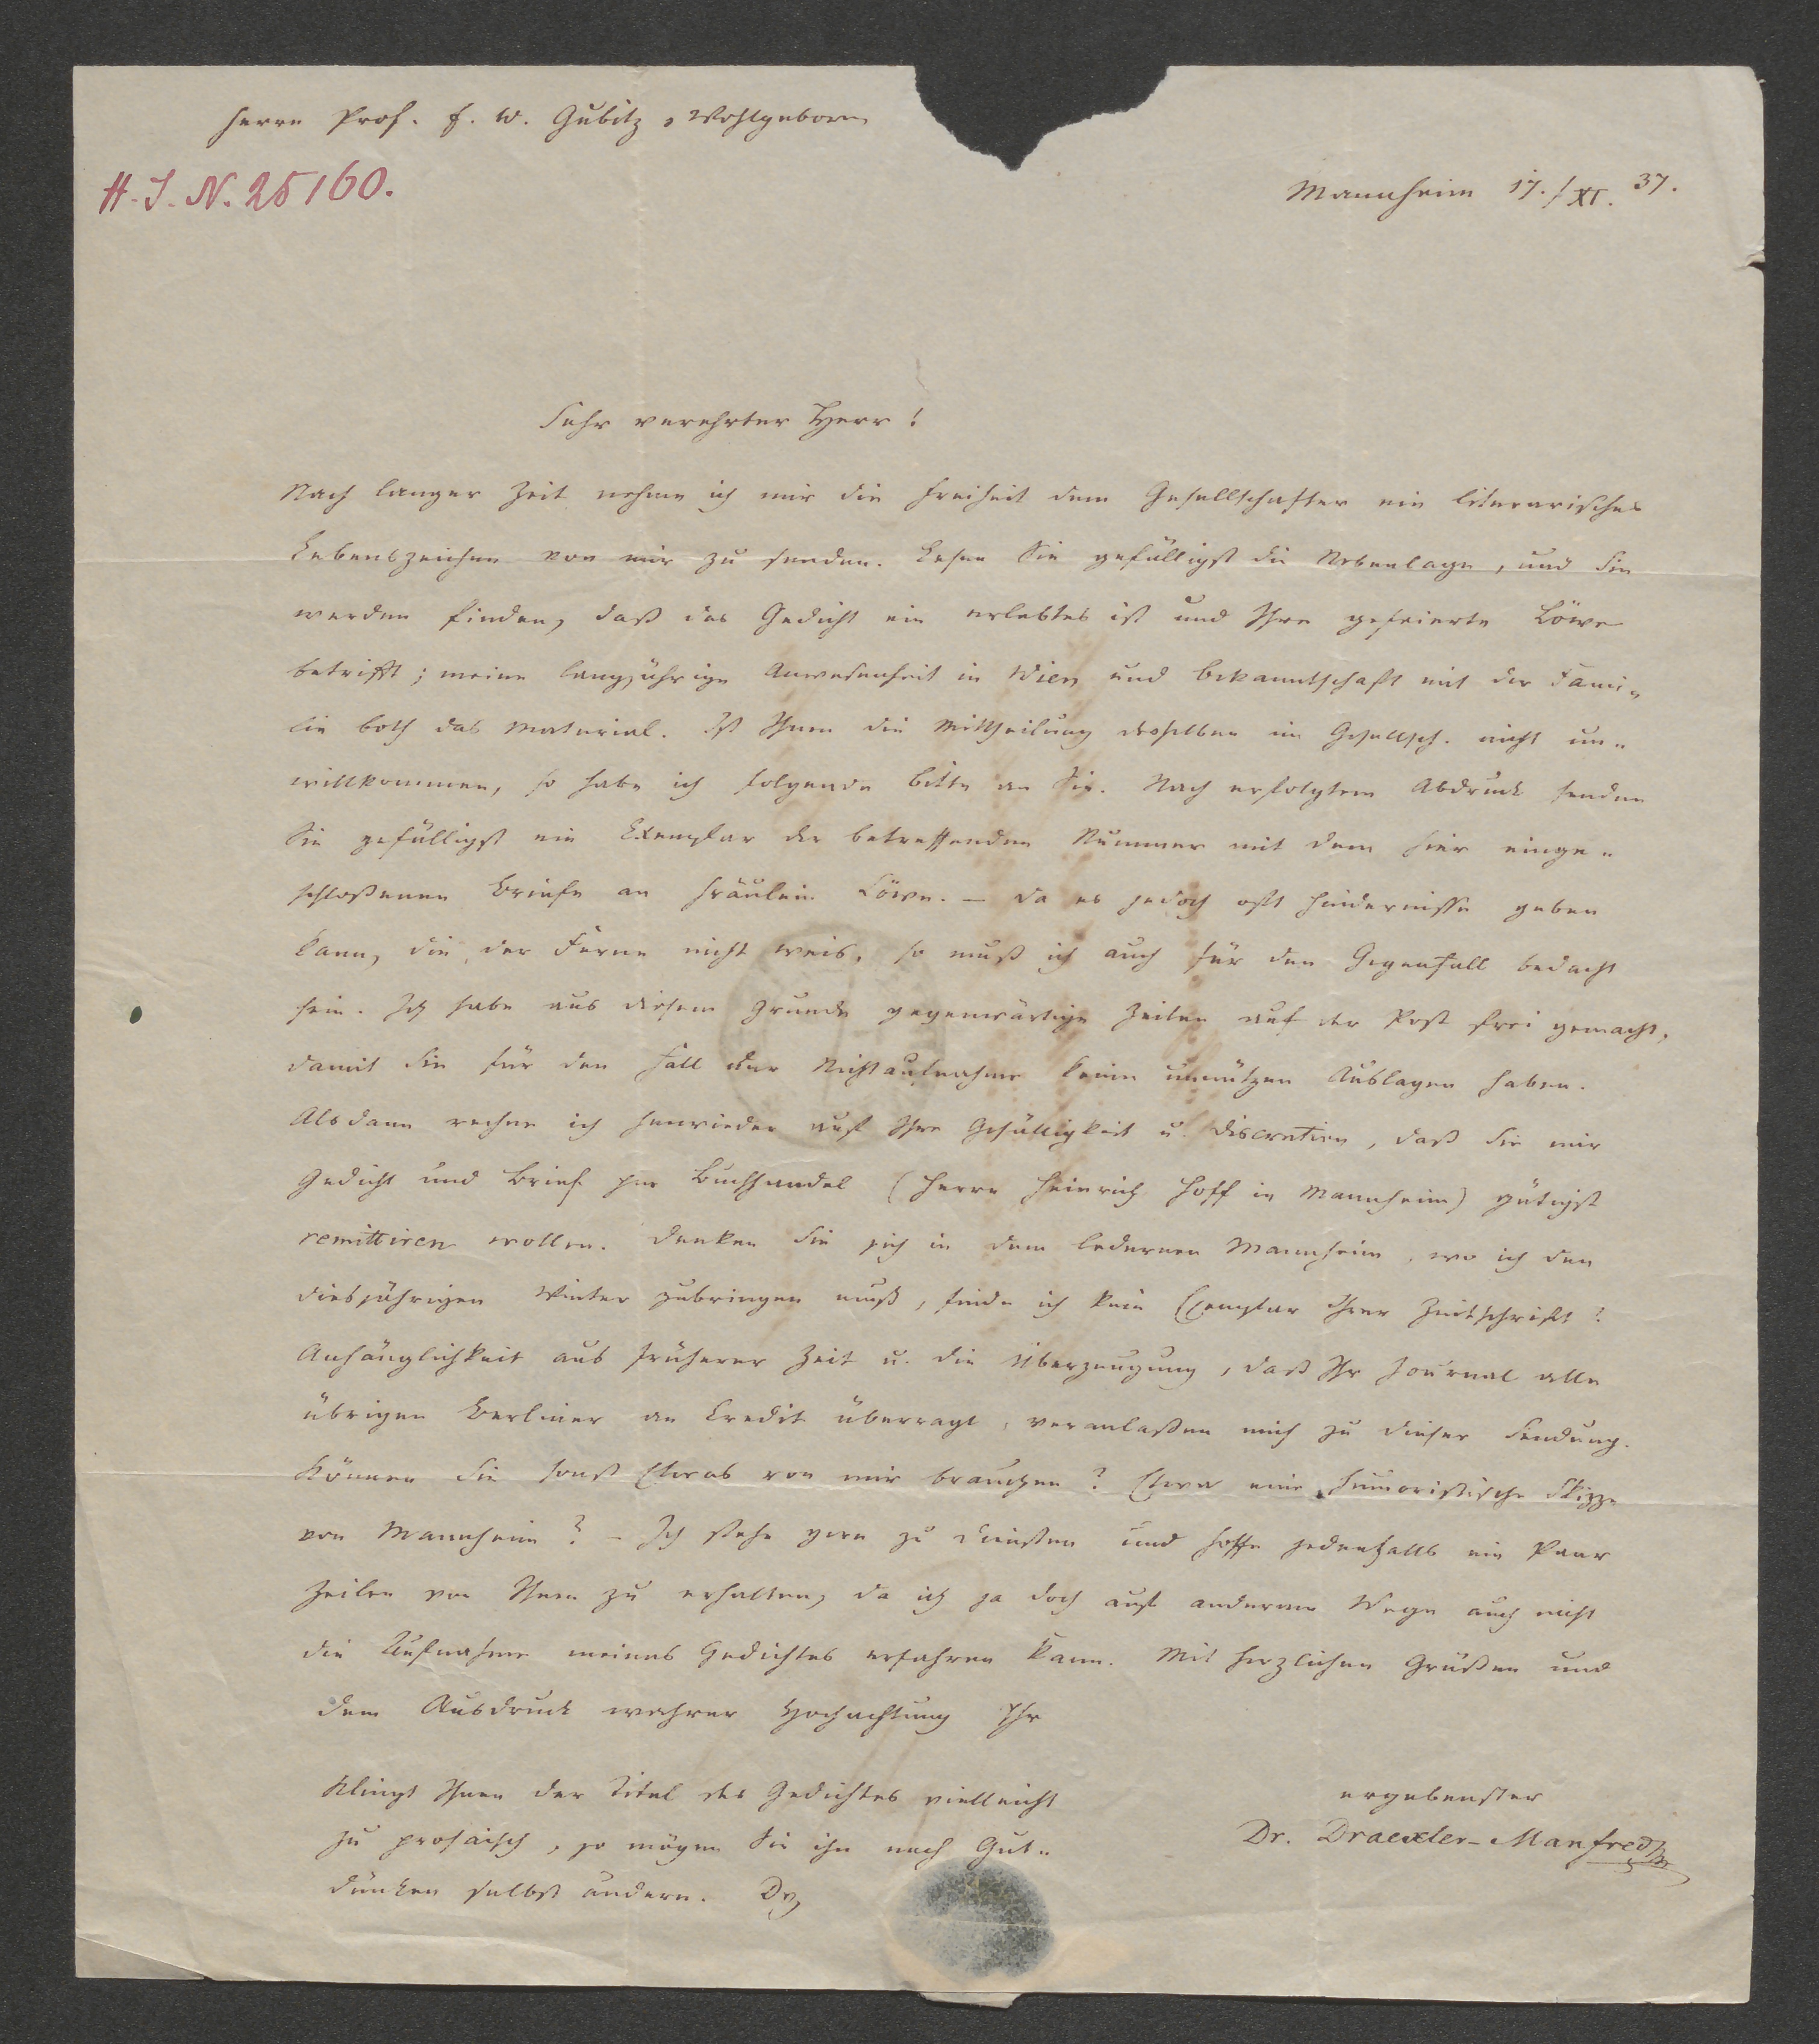 Herrn Prof. F. W. Gubitz, Wohlgeboren
H. I. N. 25160.
Mannheim 17./XI. 37.
Sehr verehrter Herr!
Nach langer Zeit nehme ich mir die Freiheit dem Gesellschafter ein literarisches
Lebenszeichen von mir zu senden. Lesen Sie gefälligst die Nebenlage, und Sie
werden finden, daß das Gedicht ein erlebtes ist und Ihre gefeierte Löwe
betrifft; meine langjährige Anwesenheit in Wien und Bekanntschaft mit der Fami-
lie both das Material. Ist Ihnen die Mittheilung desselben im Gesellsch. nicht un-
willkommen, so habe ich folgende Bitte an Sie. Nach erfolgtem Abdruck senden
Sie gefälligst ein Exemplar der betreffenden Nummer mit dem hier einge-
schloßenen Briefe an Fräulein Löwe. – Da es jedoch oft Hindernisse geben
kann, die der Ferne nicht weis, so muß ich auch für den Gegenfall bedacht
sein. Ich habe aus diesem Grunde gegenwärtige Zeilen auf der Post frei gemacht,
damit Sie für den Fall der Nichtaufnahme keine unnützen Auslagen haben.
Alsdann rechne ich hinwieder auf Ihre Gefälligkeit u. Discretion, daß Sie mir
Gedicht und Brief per Buchhandel (Herrn Heinrich Hoff in Mannheim) gütigst
remittiren wollen. Denken Sie sich in dem ledernen Mannheim, wo ich den
diesjährigen Winter zubringen muß, finde ich kein Exemplar Ihrer Zeitschrift?
Anhänglichkeit aus früherer Zeit u. die Überzeugung, daß Ihr Journal alle
übrigen Berliner an Credit überragt, veranlaßen mich zu dieser Sendung.
Können Sie sonst Etwas von mir brauchen? Etwa eine humoristische Skizze
von Mannheim? – Ich stehe gern zu Diensten und hoffe jedenfalls ein Paar
Zeilen von Ihnen zu erhalten, da ich ja doch auf anderem Wege auch nicht
die Aufnahme meines Gedichtes erfahren kann. Mit herzlichen Grüßen und
dem Ausdruck wahrer Hochachtung Ihr
ergebenster
Dr. Draexler-Manfred
Klingt Ihnen der Titel des Gedichtes vielleicht
zu prosaisch, so mögen Sie ihn nach Gut-
dünken selbst ändern. Dr